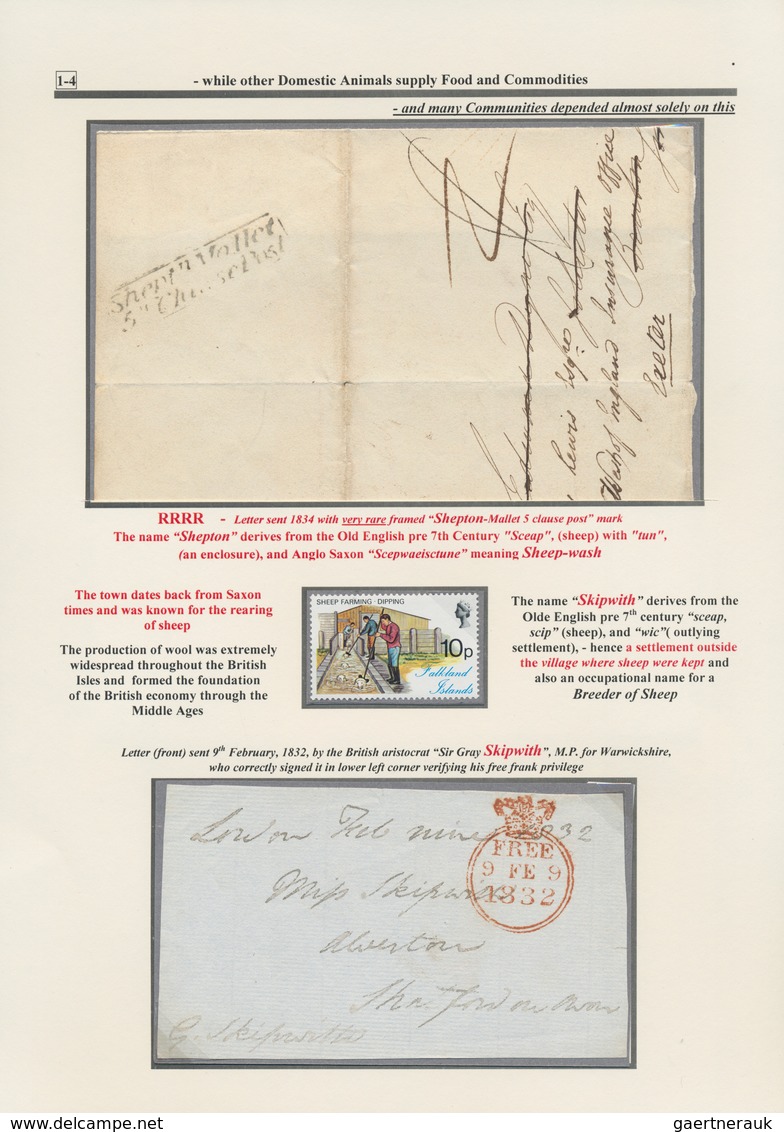 1-4
- while other Domestic Animals supply Food and Commodities
- and many Communities depended almost solely on this
Shept'n Mallet
5th Clause Post
Lewis Esqre
West of England Insurance Office
Exeter
RRRR - Letter sent 1834 with very rare framed “Shepton-Mallet 5 clause post” mark
The name “Shepton” derives from the Old English pre 7th Century "Sceap", (sheep) with "tun",
(an enclosure), and Anglo Saxon “Scepwaeisctune” meaning Sheep-wash
The town dates back from Saxon
times and was known for the rearing
of sheep
The production of wool was extremely
widespread throughout the British
Isles and formed the foundation
of the British economy through the
Middle Ages
SHEEP FARMING - DIPPING
10p
Falkland
Islands
The name “Skipwith” derives from the
Olde English pre 7th century “sceap,
scip” (sheep), and “wic”( outlying
settlement), - hence a settlement outside
the village where sheep were kept and
also an occupational name for a
Breeder of Sheep
Letter (front) sent 9th February, 1832, by the British aristocrat “Sir Gray Skipwith”, M.P. for Warwickshire,
who correctly signed it in lower left corner verifying his free frank privilege
London Feb nine 1832
FREE
9 FE 9
1832
Miss Skipwith
Alveston
Stratford on Avon
G. Skipwith
delcampe.net
gaertnerauk